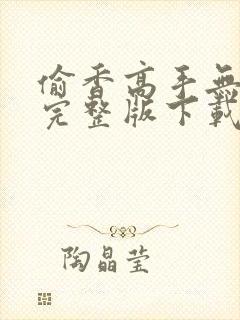 偷香高手無
完整版下載
陶晶莹